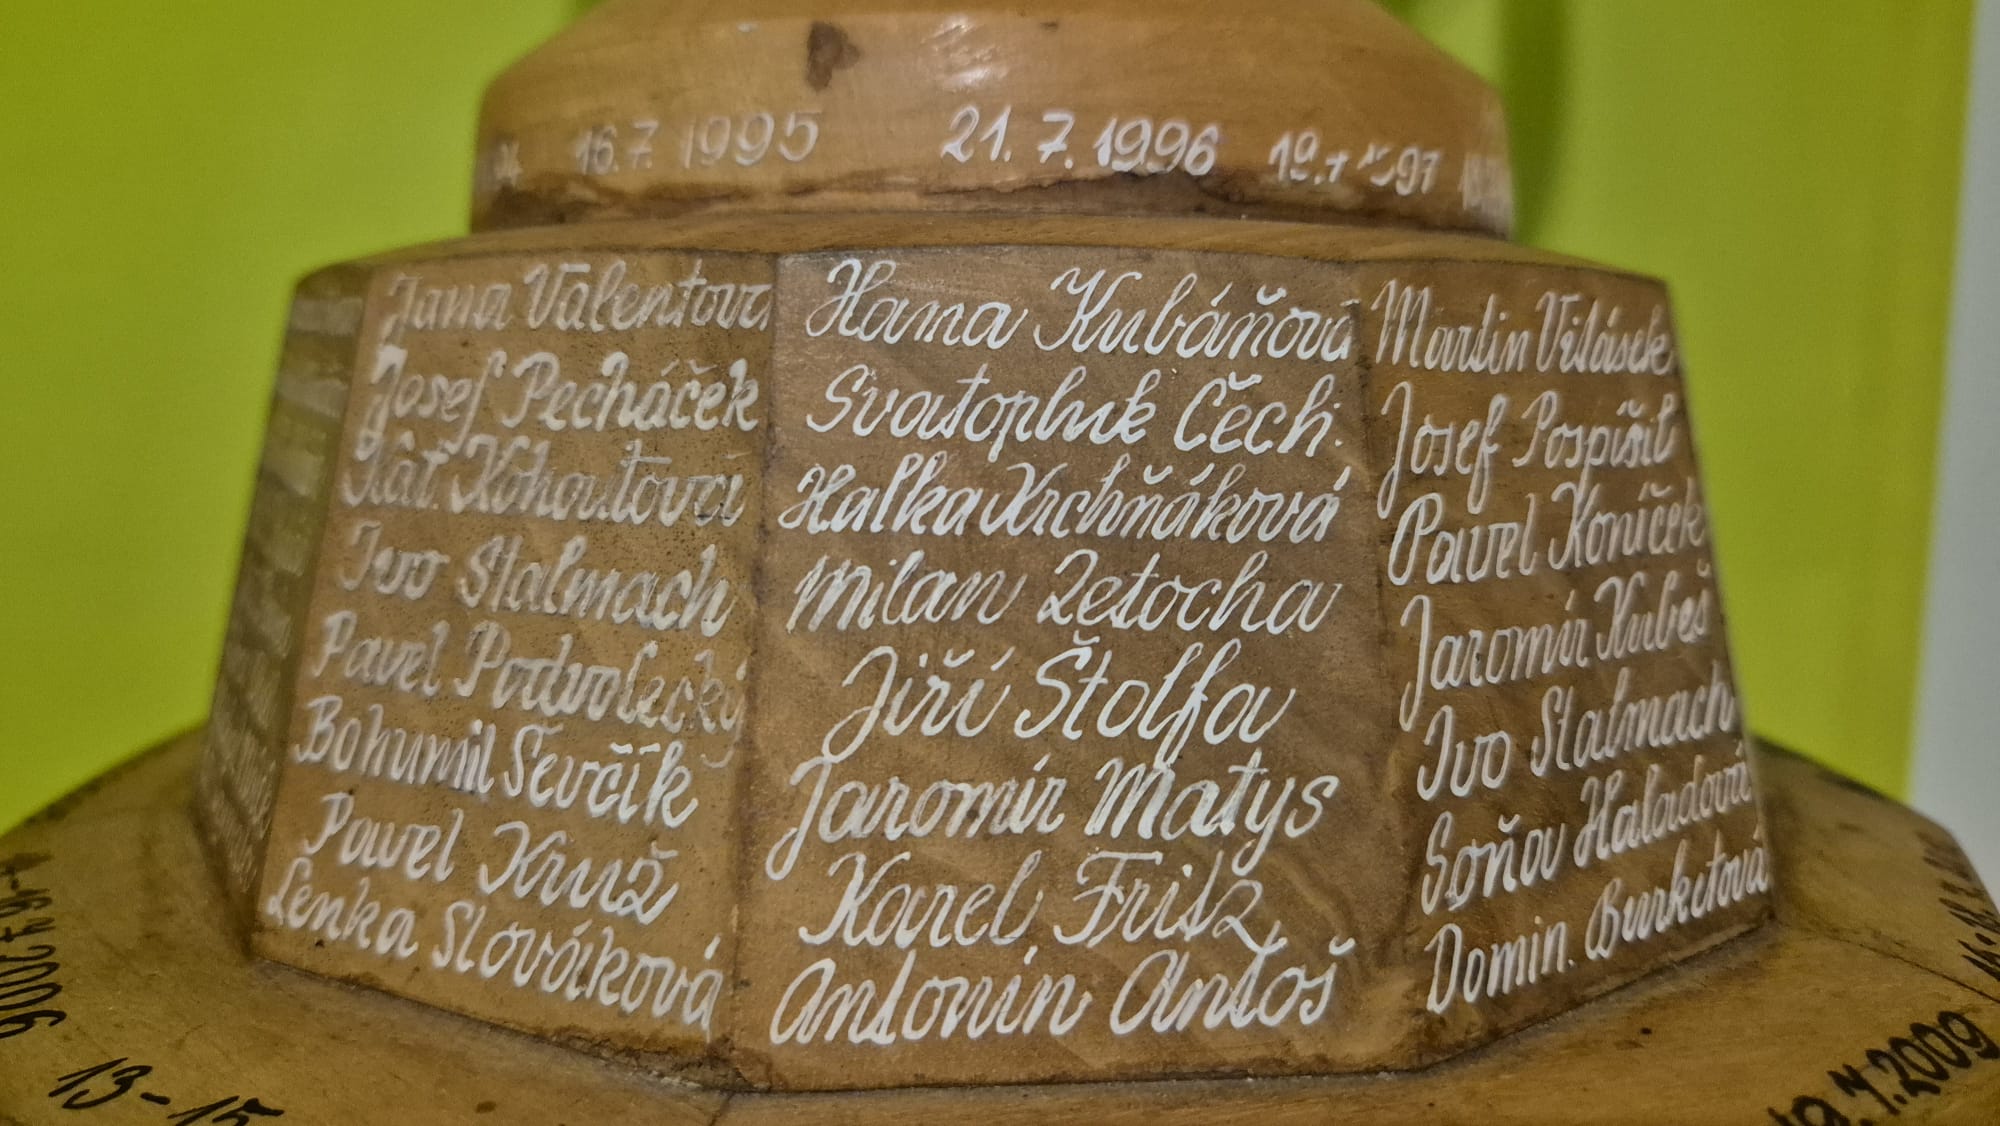 16.7. 1995
21. 7. 1996
Jana Valentová
Josef Pecháček
Kat. Kohoutová
Ivo Stalmach
Pavel Podvolecký
Bohumil Ševčík
Pavel Kruž
Lenka Slováková
Hana Kubáňová
Svatopluk Čech.
Halka Krchňáková
Milan Letocha
Jiří Štolfa
Jaromír Matys
Karel Fritz
Antonín Antoš
Martin Vitásek
Josef Pospíšil
Pavel Koníček
Jaromír Kubeš
Ivo Stalmach
Soňa Haladová
Domin. Burkitová
2006
13-15
19.7.2009